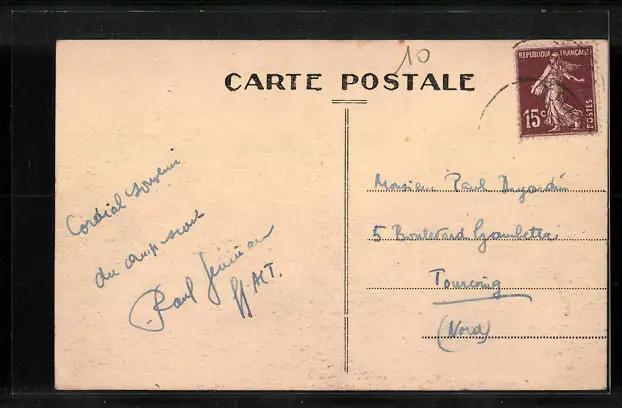 10
CARTE POSTALE
REPUBLIQUE FRANÇAISE
15c
POSTES
Cordial souvenir
du camp scout
Paul
Monsieur Paul Dujardin
5 Boulevard Gambetta
Tourcoing
(Nord)